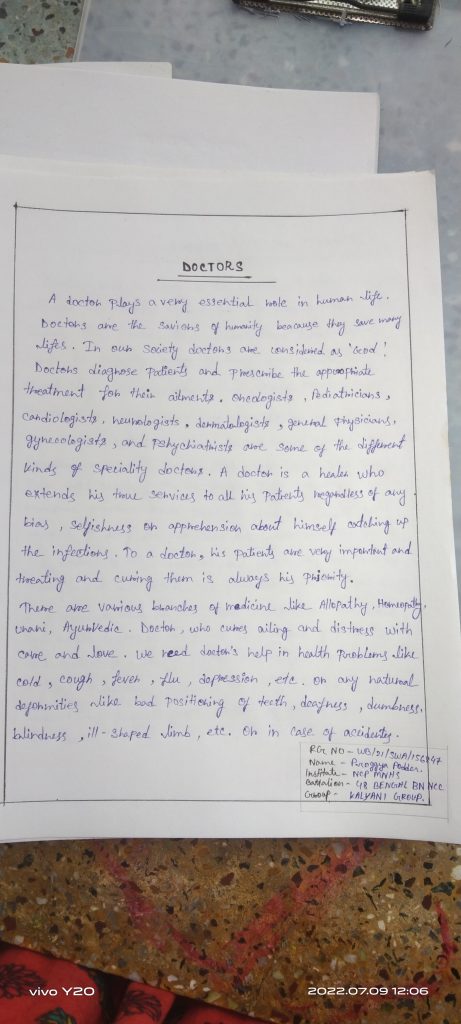 DOCTORS
A doctor plays a very essential role in human life.
Doctors are the saviors of humanity beacause they save many
lifes. In our society doctors are considered as 'God'.
Doctors diagnose patients and prescribe the appropriate
treatment for their ailments. Oncologists, Pediatricians,
cardiologists, neurologists, dermatologists, general physicians,
gynecologists, and pshychiatrists are some of the different
kinds of speciality doctors. A doctor is a healer who
extends his true services to all his patients regardless of any
bias, selfishness or apprehension about himself catching up
the infections. To a doctor, his patients are very important and
treating and curing them is always his priority.
There are various branches of medicine like Allopathy, Homeopathy,
Unani, Ayurvedic. Doctor, who cures ailing and distress with
care and love. We need doctor's help in health problems like
cold, cough, fever, flu, depression, etc. or any natural
deformities like bad positioning of teeth, deafness, dumbness,
blindness, ill-shaped limb, etc. Or in case of accidents.
RG NO - WB/21/SWA/156247
Name - Progya Podder.
Institute - NCP MNHS
Battalion - 48 BENGAL BN NCC
Group - KALYANI GROUP.
vivo Y20
2022.07.09 12:06